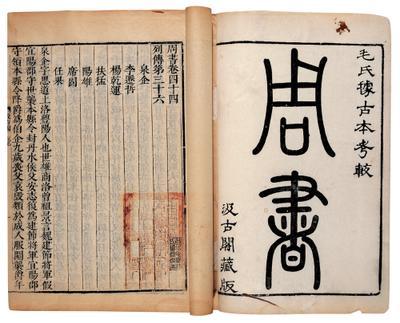 毛氏據古本考較
周書
汲古閣藏版
周書卷四十四
列傳第三十六
泉企
李遷哲
楊乾運
扶猛
陽雄
席固
任果
泉企字思道上洛豐陽人也世雄商洛曾祖景言魏建節將軍假
宜陽郡守世襲本縣令封丹水侯父安志復為建節將軍宜陽郡
守領本縣令降爵為伯企九歲喪父哀毀類於成人服闋襲爵年